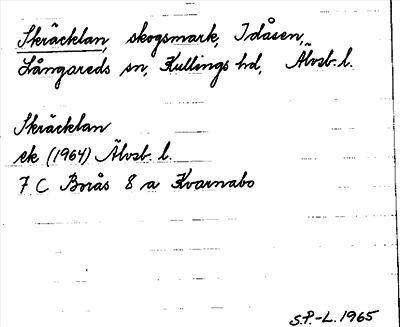 Skräcklan, skogsmark, Idåsen,
Långareds sn, Kullings hd, Älvsb. l.
Skräcklan
ek (1964) Älvsb. l.
7 C Borås 8 a Kvarnabo
S.P.-L. 1965